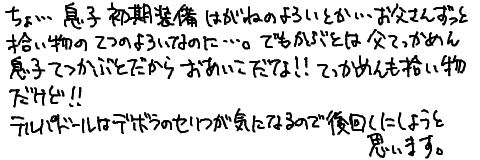 ちょ… 息子 初期装備 はがねのよろいとか…お父さんずっと
拾い物のてつのよろいなのに…。でもかぶとは父てっかめん
息子てつかぶとだからおあいこだな!!てっかめんも拾い物
だけど!!
テルパドールはデボラのセリフが気になるので後回しにしようと
思います。